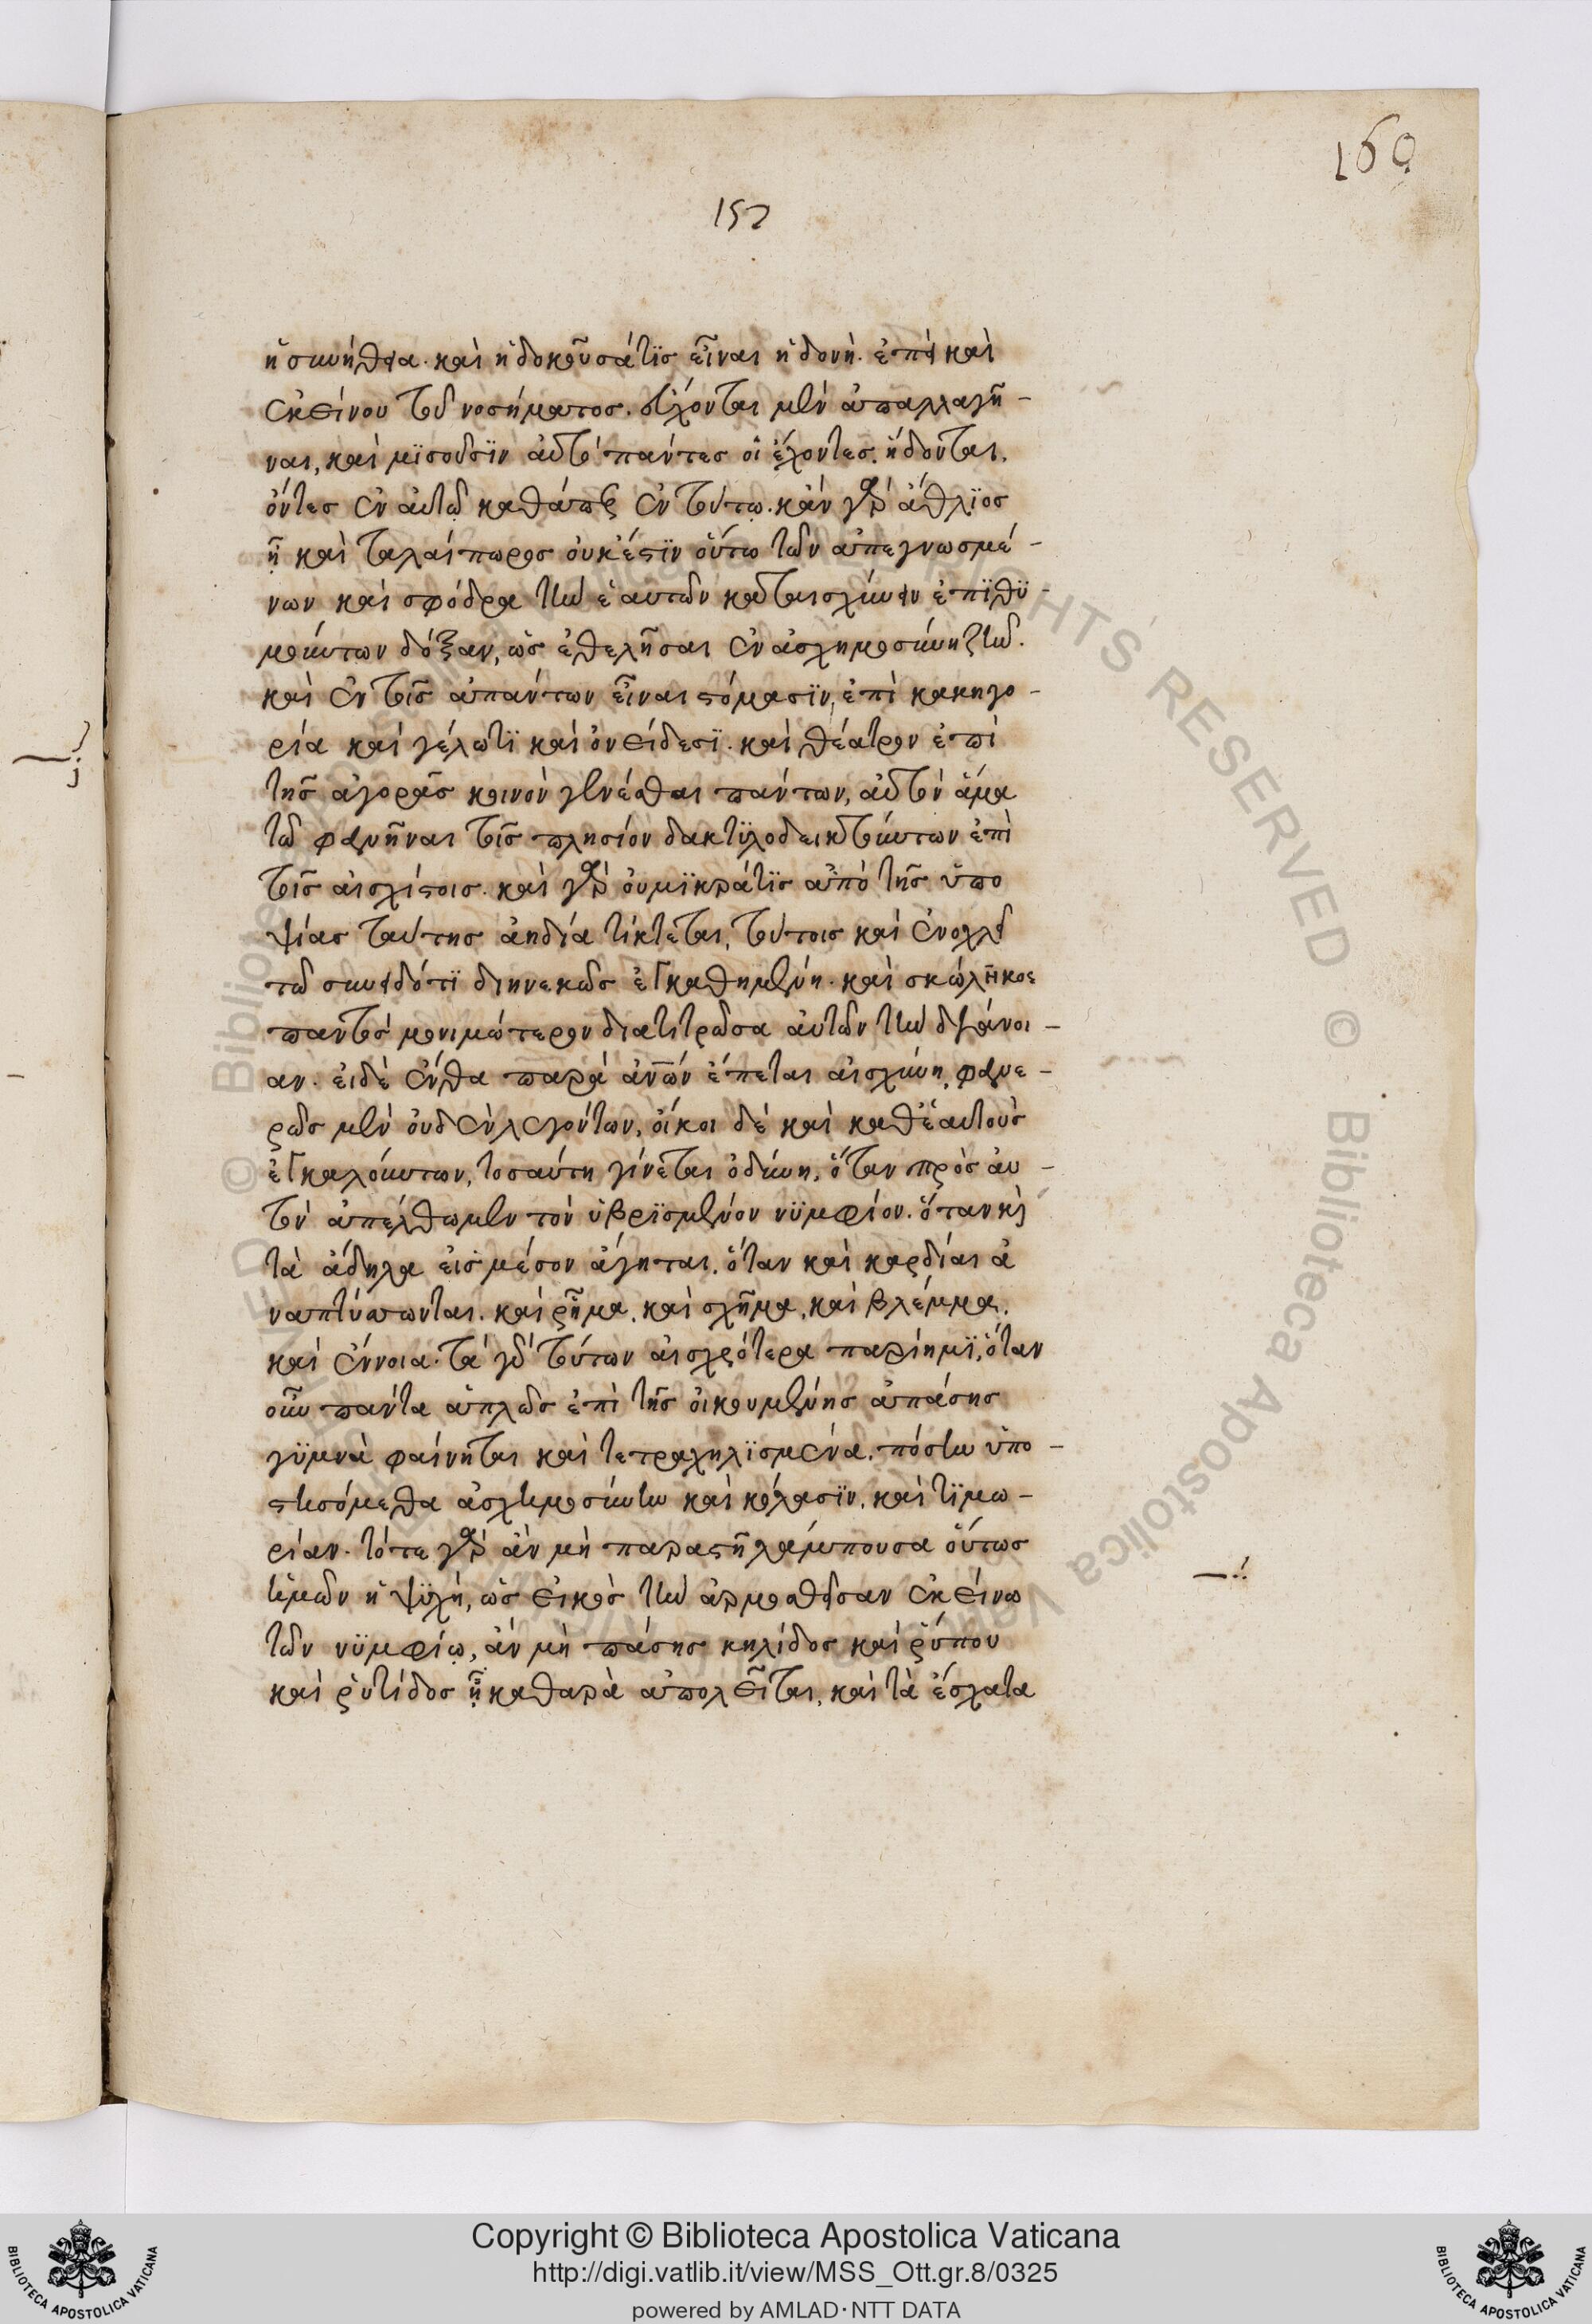 160
157
ἡ συνήθεια. καὶ ἡ δοκοῦσά τϊς εἶναι ἡδονή. ἐπεὶ καὶ
ἐκείνου τοῦ νοσήματος. εὔχονται μὲν ἀπαλλαγῆ -
ναι, καὶ μϊσοῦσϊν αὐτὸ πάντες οἱ ἔχοντες. ἥδονται,
ὄντες ἐν αὐτῷ καθάπερ ἐν τούτῳ. κἂν γὰρ ἄθλϊος
ἦ καὶ ταλαίπωρος οὐκέστϊν οὕτω τῶν ἀπεγνωσμέ -
νων καὶ σφόδρα τὴν ἑαυτῶν καταισχύνειν ἐπϊθϋ -
μούντων δόξαν, ὡς ἐθελῆσαι ἐν ἀσχημοσύνη ζῆν.
καὶ ἐν τοῖς ἁπάντων εἶναι στόμασϊν, ἐπὶ κακηγο -
ρία καὶ γέλωτϊ καὶ ὀνείδεσϊ. καὶ θέατρον ἐπὶ
τῆς ἀγορᾶς κοινὸν γενέσθαι πάντων, αὐτὸν ἅμα
τῶ φανῆναι τοῖς πλησίον δακτϋλοδεικτούντων ἐπὶ
τοῖς αἰσχίστοις. καὶ γὰρ οὐ μϊκρά τϊς ἀπὸ τῆς ὑπο
ψίας ταύτης ἀηδία τίκτεται, τούτοις καὶ ἐνοχλεῖ
τῶ συνειδότϊ διηνεκῶς ἐγκαθημένη. καὶ σκώληκος
παντὸς μονιμώτερον διατιτρῶσα αὐτῶν τὴν διάνοι -
αν. εἰ δὲ ἔνθα παρὰ ἀνῶν ἕπεται αἰσχύνη, φανε -
ρῶς μὲν οὐδὲν λεγόντων, οἴκοι δὲ καὶ καθ' ἑαυτοὺς
ἐγκαλούντων, τοσαύτη γίνεται ὀδύνη, ὅταν πρὸς αὐ -
τὸν ἀπέλθωμεν τὸν ὑβρϊσμένον νϋμφίον. ὅταν κὶ
τὰ ἄδηλα εἰς μέσον ἄγηται. ὅταν καὶ καρδίαι ἀ
ναπτύσσωνται. καὶ ῥῆμα. καὶ σχῆμα, καὶ βλέμμα.
καὶ ἔννοια. τὰ γὰρ τούτων αἰσχρότερα παρίημϊ, ὅταν
οὖν πάντα ἁπλῶς ἐπὶ τῆς οἰκουμένης ἁπάσης
γϋμνὰ φαίνηται καὶ τετραχηλϊσμένα. πόσην ὑπο -
στησόμεθα ἀσχημοσύνην καὶ κόλασϊν. καὶ τϊμω -
ρίαν. τότε γὰρ ἂν μὴ παραστῆ λάμπουσα οὕτως
ἡμῶν ἡ ψϋχή, ὡς εἰκὸς τὴν ἁρμοσθεῖσαν ἐκείνω
τῶν νϋμφίῳ, ἂν μὴ πάσης κηλίδος καὶ ῥύπου
καὶ ῥυτίδος ᾖ καθαρὰ ἀπολεῖται, καὶ τὰ ἔσχατα
Copyright © Biblioteca Apostolica Vaticana
http://digi.vatlib.it/view/MSS_Ott.gr.8/0325
powered by AMLAD·NTT DATA